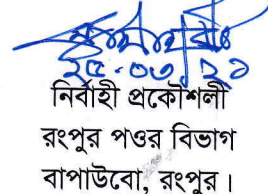 ২৫.০৩.২১
নির্বাহী প্রকৌশলী
রংপুর পওর বিভাগ
বাপাউবো, রংপুর।